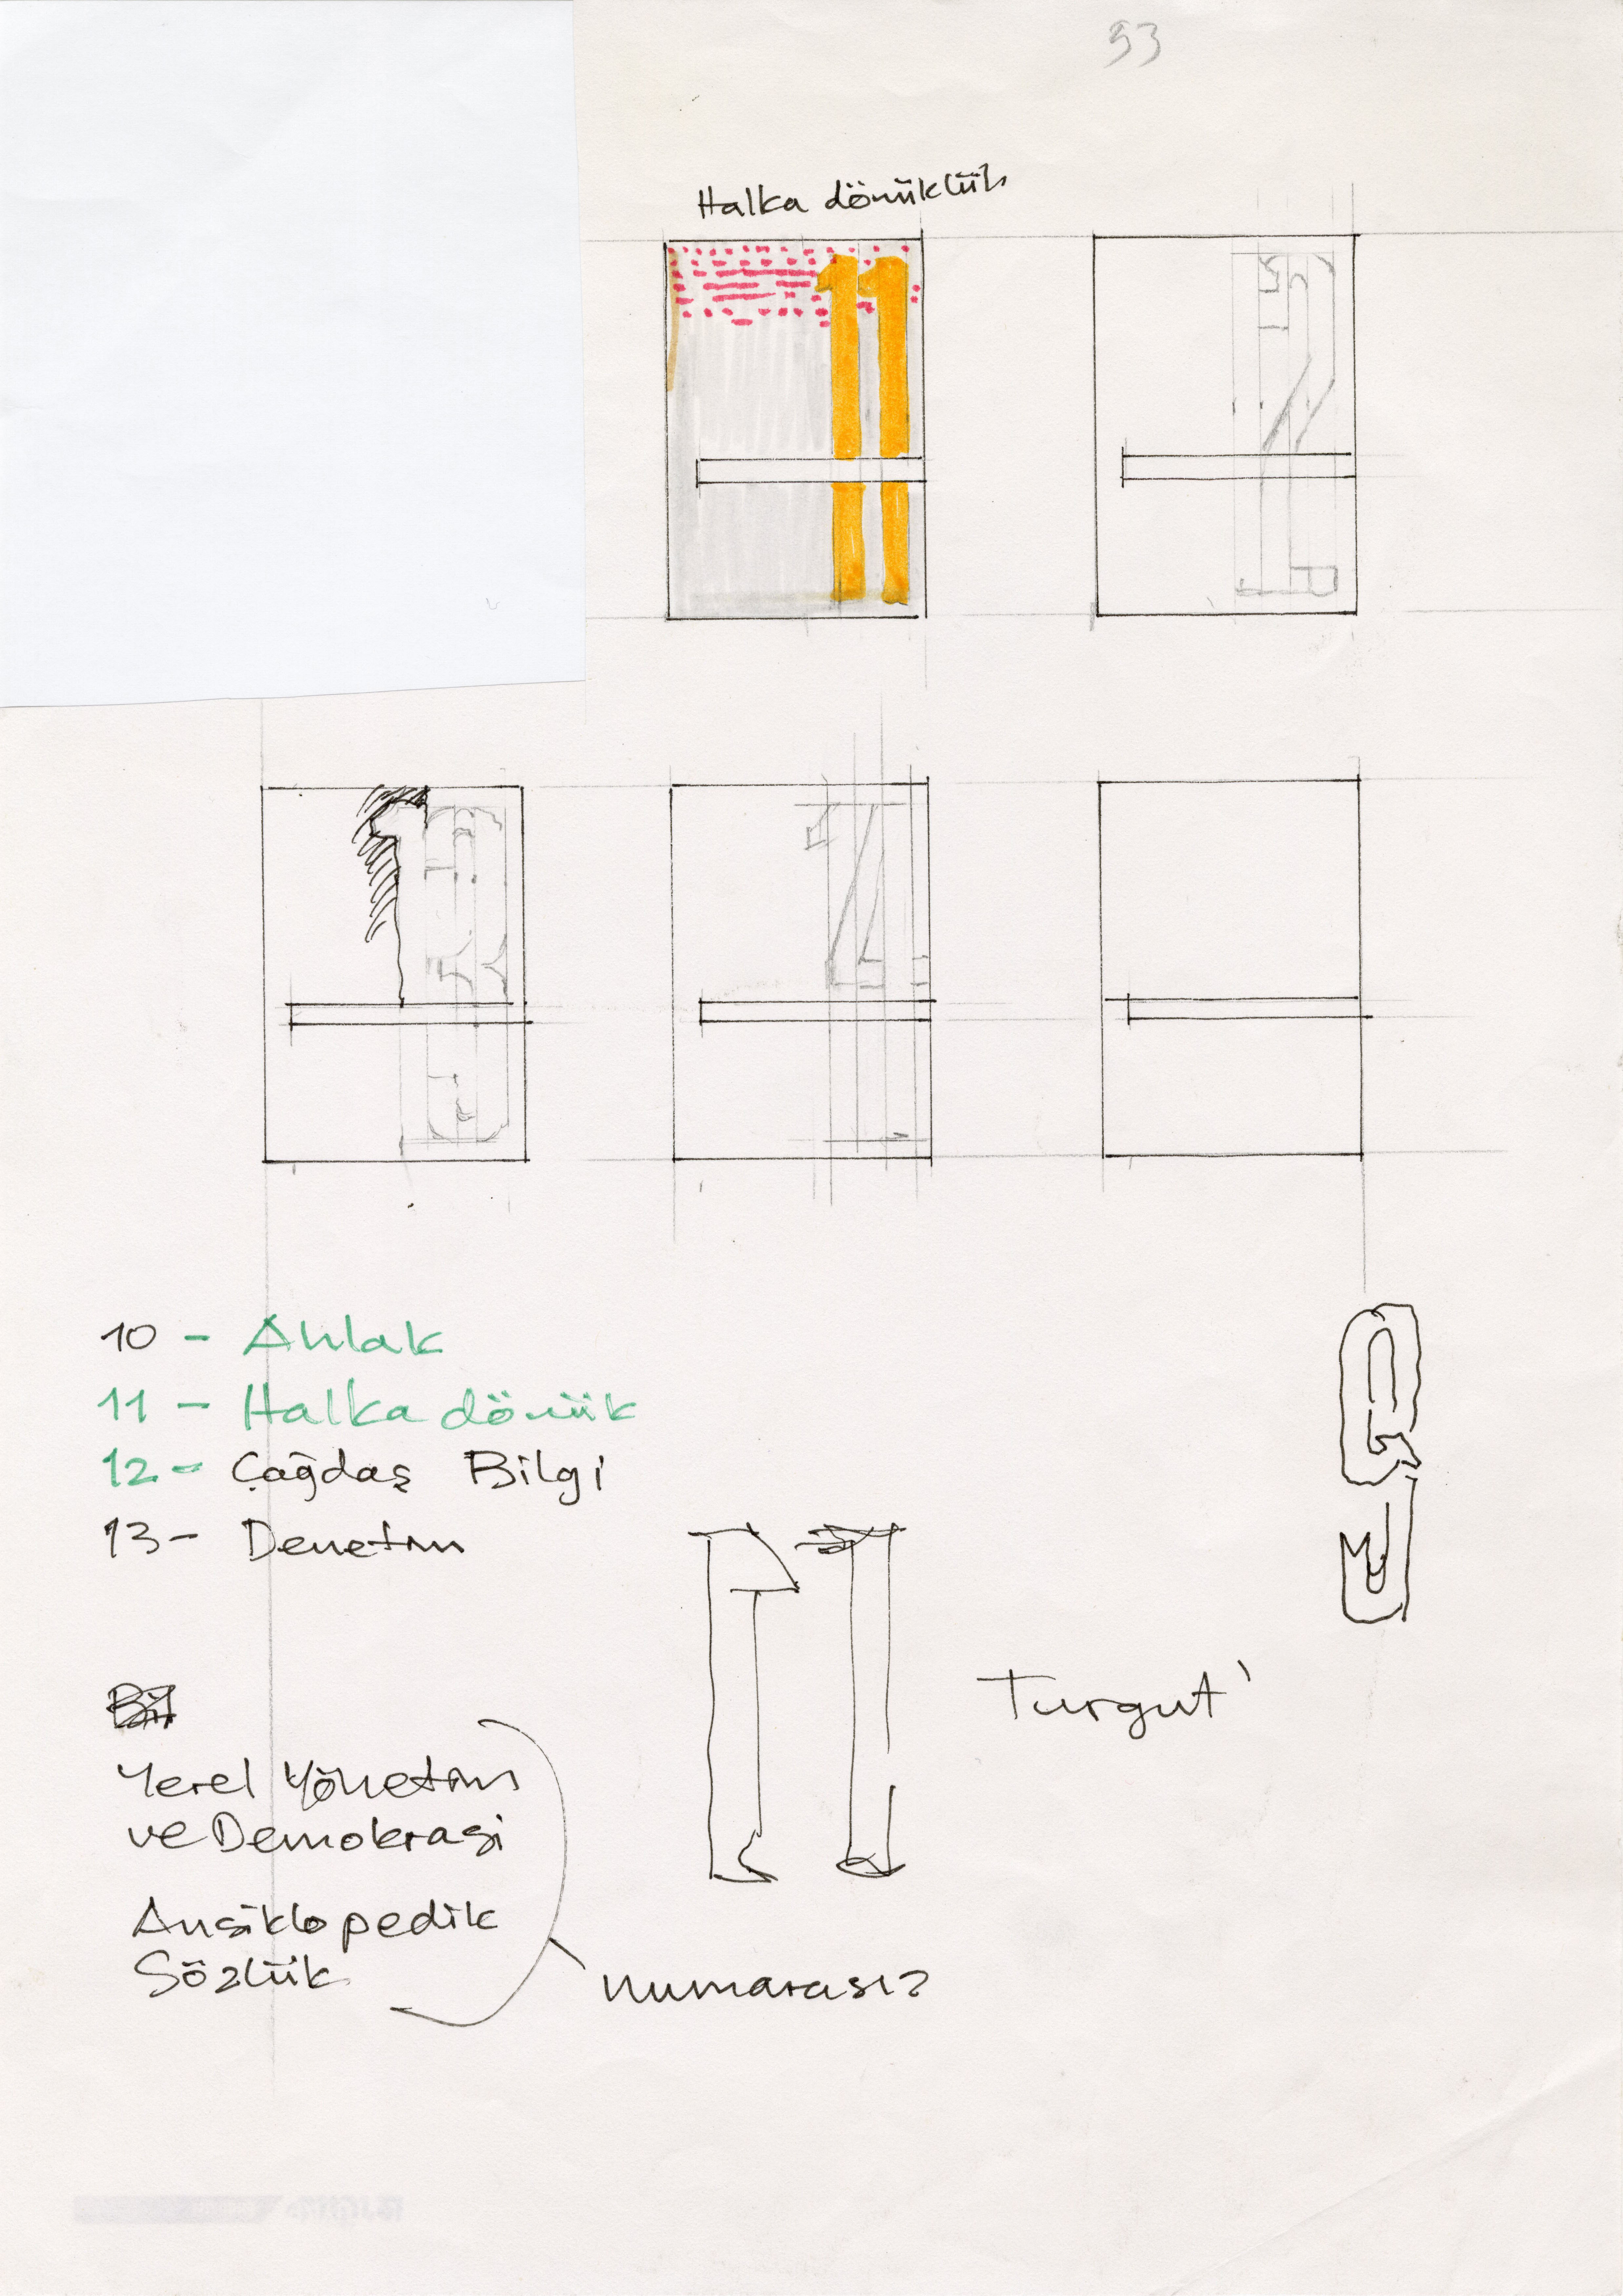 53
Halka dönüklük
11
10 - Ahlak
11 - Halka dönük
12 - Çağdaş Bilgi
13 - Denetim
Yerel Yönetim
ve Demokrasi
Ansiklopedik
Sözlük
numarasız
Turgut'